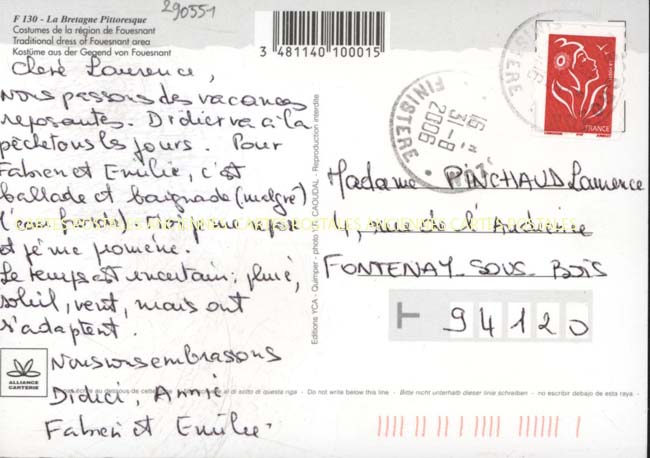 290551
F 130 - La Bretagne Pittoresque
Costumes de la région de Fouesnant
Traditional dress of Fouesnant area
Kostüme aus der Gegend von Fouesnant
3 481140 100015
Chère Laurence,
nous passons des vacances
reposantes. Didier va à la
pêche tous les jours. Pour
Fabien et Emilie, c'est
ballade et baignade (malgré
(eau froide) Moi je me repose
et je me promène.
Le temps est incertain; pluie,
soleil, vent, mais on
s'adaptent.
Nous vous embrassons
Didier, Annie
Fabien et Emilie.
Editions YCA - Quimper - photo Yvis CAOUDAL - Reproduction interdite
FINISTERE
16 H
3 -8
2006
FINISTERE
FRANCE
LA POSTE
Madame PINCHAUD Laurence
4, rue de l'Audience
FONTENAY-SOUS-BOIS
94120
CARTES POSTALES ANCIENNES CARTES POSTALES ANCIENNES CARTES POSTALES
ALLIANCE
CARTERIE
au dessous de cette al di sotto di questa riga - Do not write below this line - Bitte nicht unterhalb dieser linie schreiben - no escribir debajo de esta raya -